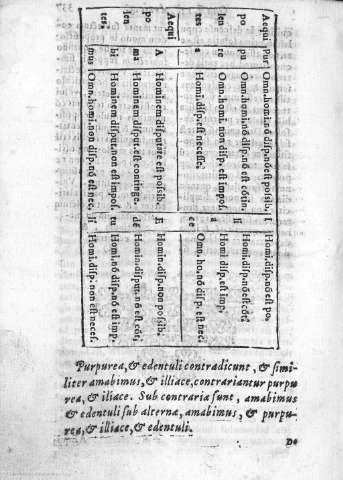 Aequi Pur Omn.homi.nō disp.nōest possib. I Homi.disp.nō est po.
po pu Omn.homi.nō disp.nō est cōtin. li Homi.disp.nōest cōt.
len re Omn.homi. non disp.est impos. a Homi disp.est imp.
tes a Homi.disp.est necesse. ce Omn.ho.nō disp.nō est nec.
Aequi A Hominem disputare est possib. E Homin.disp.non possib.
po ma Hominem disput.est continge. dē Homin.disput.nō est cōt.
len bi Hominem disput.non est impos. tu Homi.nō disp.nō est imp.
tes. mus Omn.homi.non disp.nō est nec. li Homi.disp. non est neces.
Purpurea, & edentuli contradicunt, & simi-
liter amabimus, & illiace, contrariantur purpu
rea, & iliace. Sub contraria sunt, amabimus
& edentuli sub alternæ, amabimus, & purpu-
rea, & illiace, & edentuli.
De